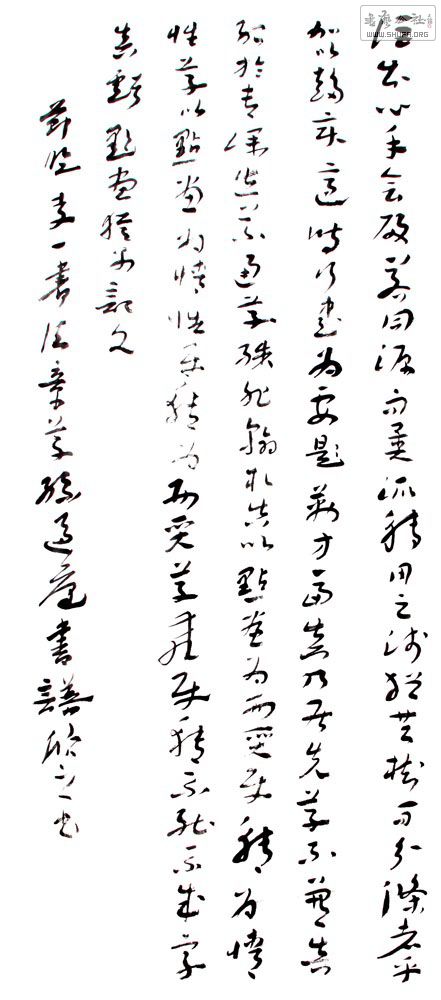 詎知心手會歸若同源而異派轉用之術猶共樹而分條者乎
加以趨變適時行書為要題勒方畐真乃居先草不兼真
殆於專謹真不通草殊非翰札真以點畫為形質使轉為情
性草以點畫為情性使轉為形質草乖使轉不能成字
真虧點畫猶可記文
節臨李一書法章草孫過庭書譜 書
WWW.SHUFA.ORG